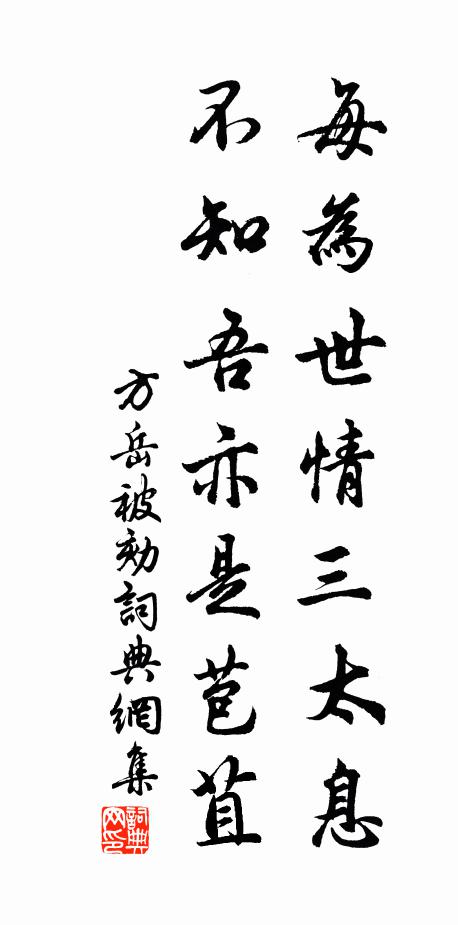 每為世情三太息
不知吾亦是苞苴
方岳被劾詞典網集
詞典網印